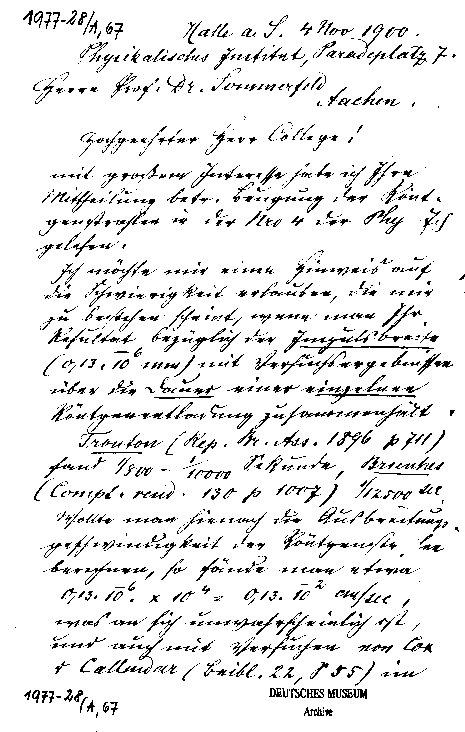 1977-28/A,67
Halle a. S. 4 Nov. 1900.
Physikalisches Institut, Paradeplatz 7.
Herrn Prof. Dr. Sommerfeld
Aachen.
Hochgeehrter Herr College!
mit großem Interesse habe ich Ihre
Mittheilung betr. Beugung der Rönt-
genstrahlen in der Nro 4 der Phys. Z.S
gelesen.
Ich möchte mir einen Hinweis auf
die Schwierigkeit erlauben, die mir
zu bestehen scheint, wenn man Ihr
Resultat bezüglich der Impulsbreite
(0,13. 10⁻⁶ mm) mit Versuchsergebnissen
über die Dauer einer einzelnen
Röntgenentladung zusammenhält.
Trouton (Rep. Br. Ass. 1896 p 711)
fand 1/800 - 1/10000 Sekunde, Brunhes
(Compt. rend. 130 p 1007) 1/12000 sec
Wollte man hienach die Ausbreitungs-
geschwindigkeit der Röntgenstrahlen
berechnen, so fände man etwa
0,13. 10⁻⁶ × 10⁴ = 0,13. 10⁻² cm/sec,
was an sich unwahrscheinlich ist,
und auch mit Versuchen von Cox
& Callendar (Beibl. 22, S 55) im
1977-28/A,67
DEUTSCHES MUSEUM
Archiv